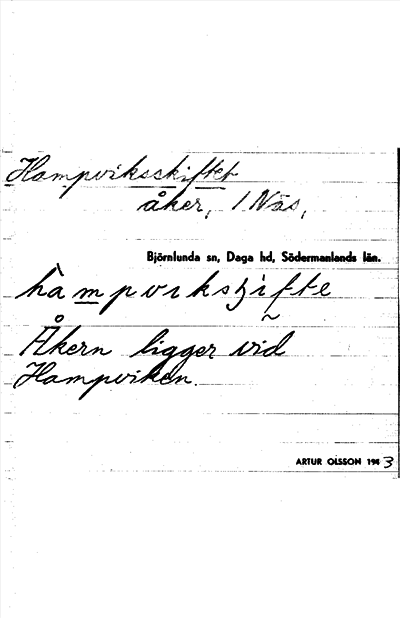 Hampviksskiftet
åker, 1 Näs,
Björnlunda sn, Daga hd, Södermanlands län.
hàmpviksʒifte
Åkern ligger vid
Hampviken.
ARTUR OLSSON 1943